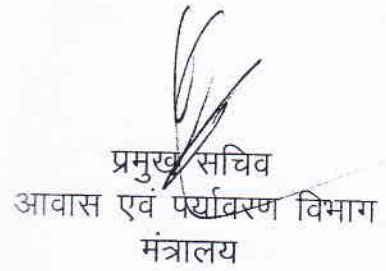 प्रमुख सचिव
आवास एवं पर्यावरण विभाग
मंत्रालय